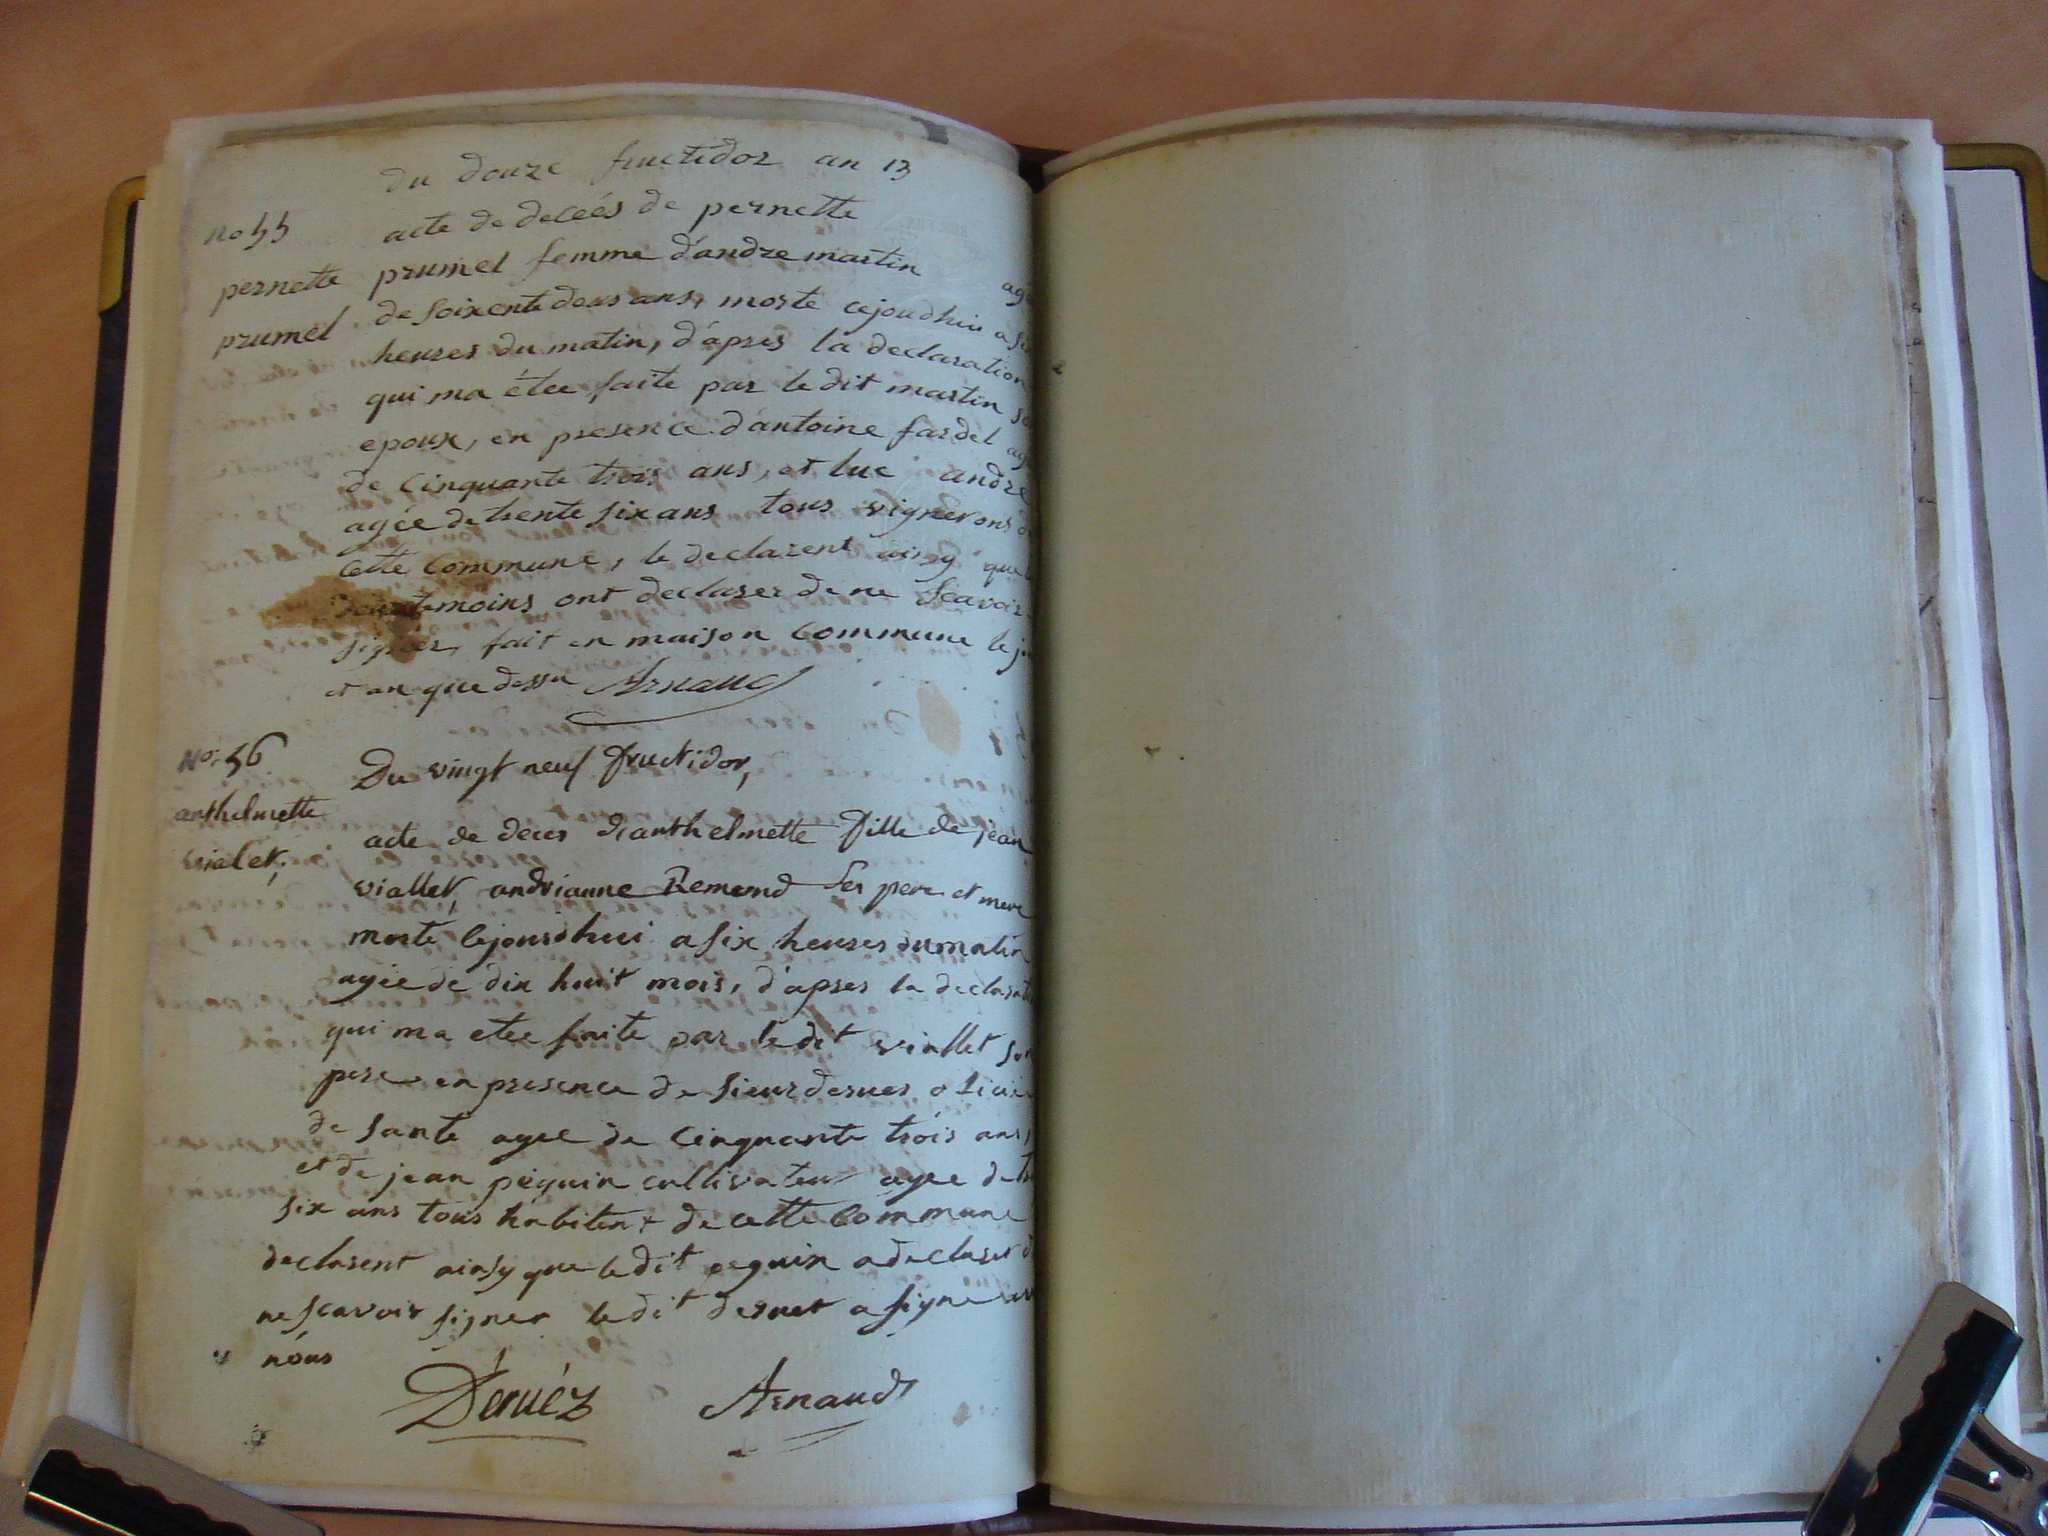 du douze fructidor an 13
no 55
acte de deceés de pernette
pernette
prumel femme d'andre martin agé
prumel
de soixente deus ans, morte cejoudhui a
heures du matin, d'aprés la declaration
qui ma étee faite par le dit martin
epoux, en presence d'antoine fardel
de cinquante trois ans, et luc andre
agée de trente six ans tous vignerons
cette commune, le declarent ainsy que
temoins ont declarer de ne sçavoir
signer, fait en maison commune le
et an que dessu Arnaud
No. 56
Du vingt neuf fructidor,
anthelmette
acte de deces d'anthelmette fille de jean
vialet,
viallet, andrianne Remond ses pere et mere
morte cejourdhui a six heures du matin
agée de dix huit mois, d'apres la declarat
qui ma etee faite par le dit viallet son
pere en presence de sieur deruer
de sante agee de cinquante trois ans,
et de jean péguin cultivateur agee de
six ans tous habitent de cette commune
declarent ainsy que le dit peguin a declarer
ne scavoir signer le dit deruet a signe
nous
Déruéz Arnaud